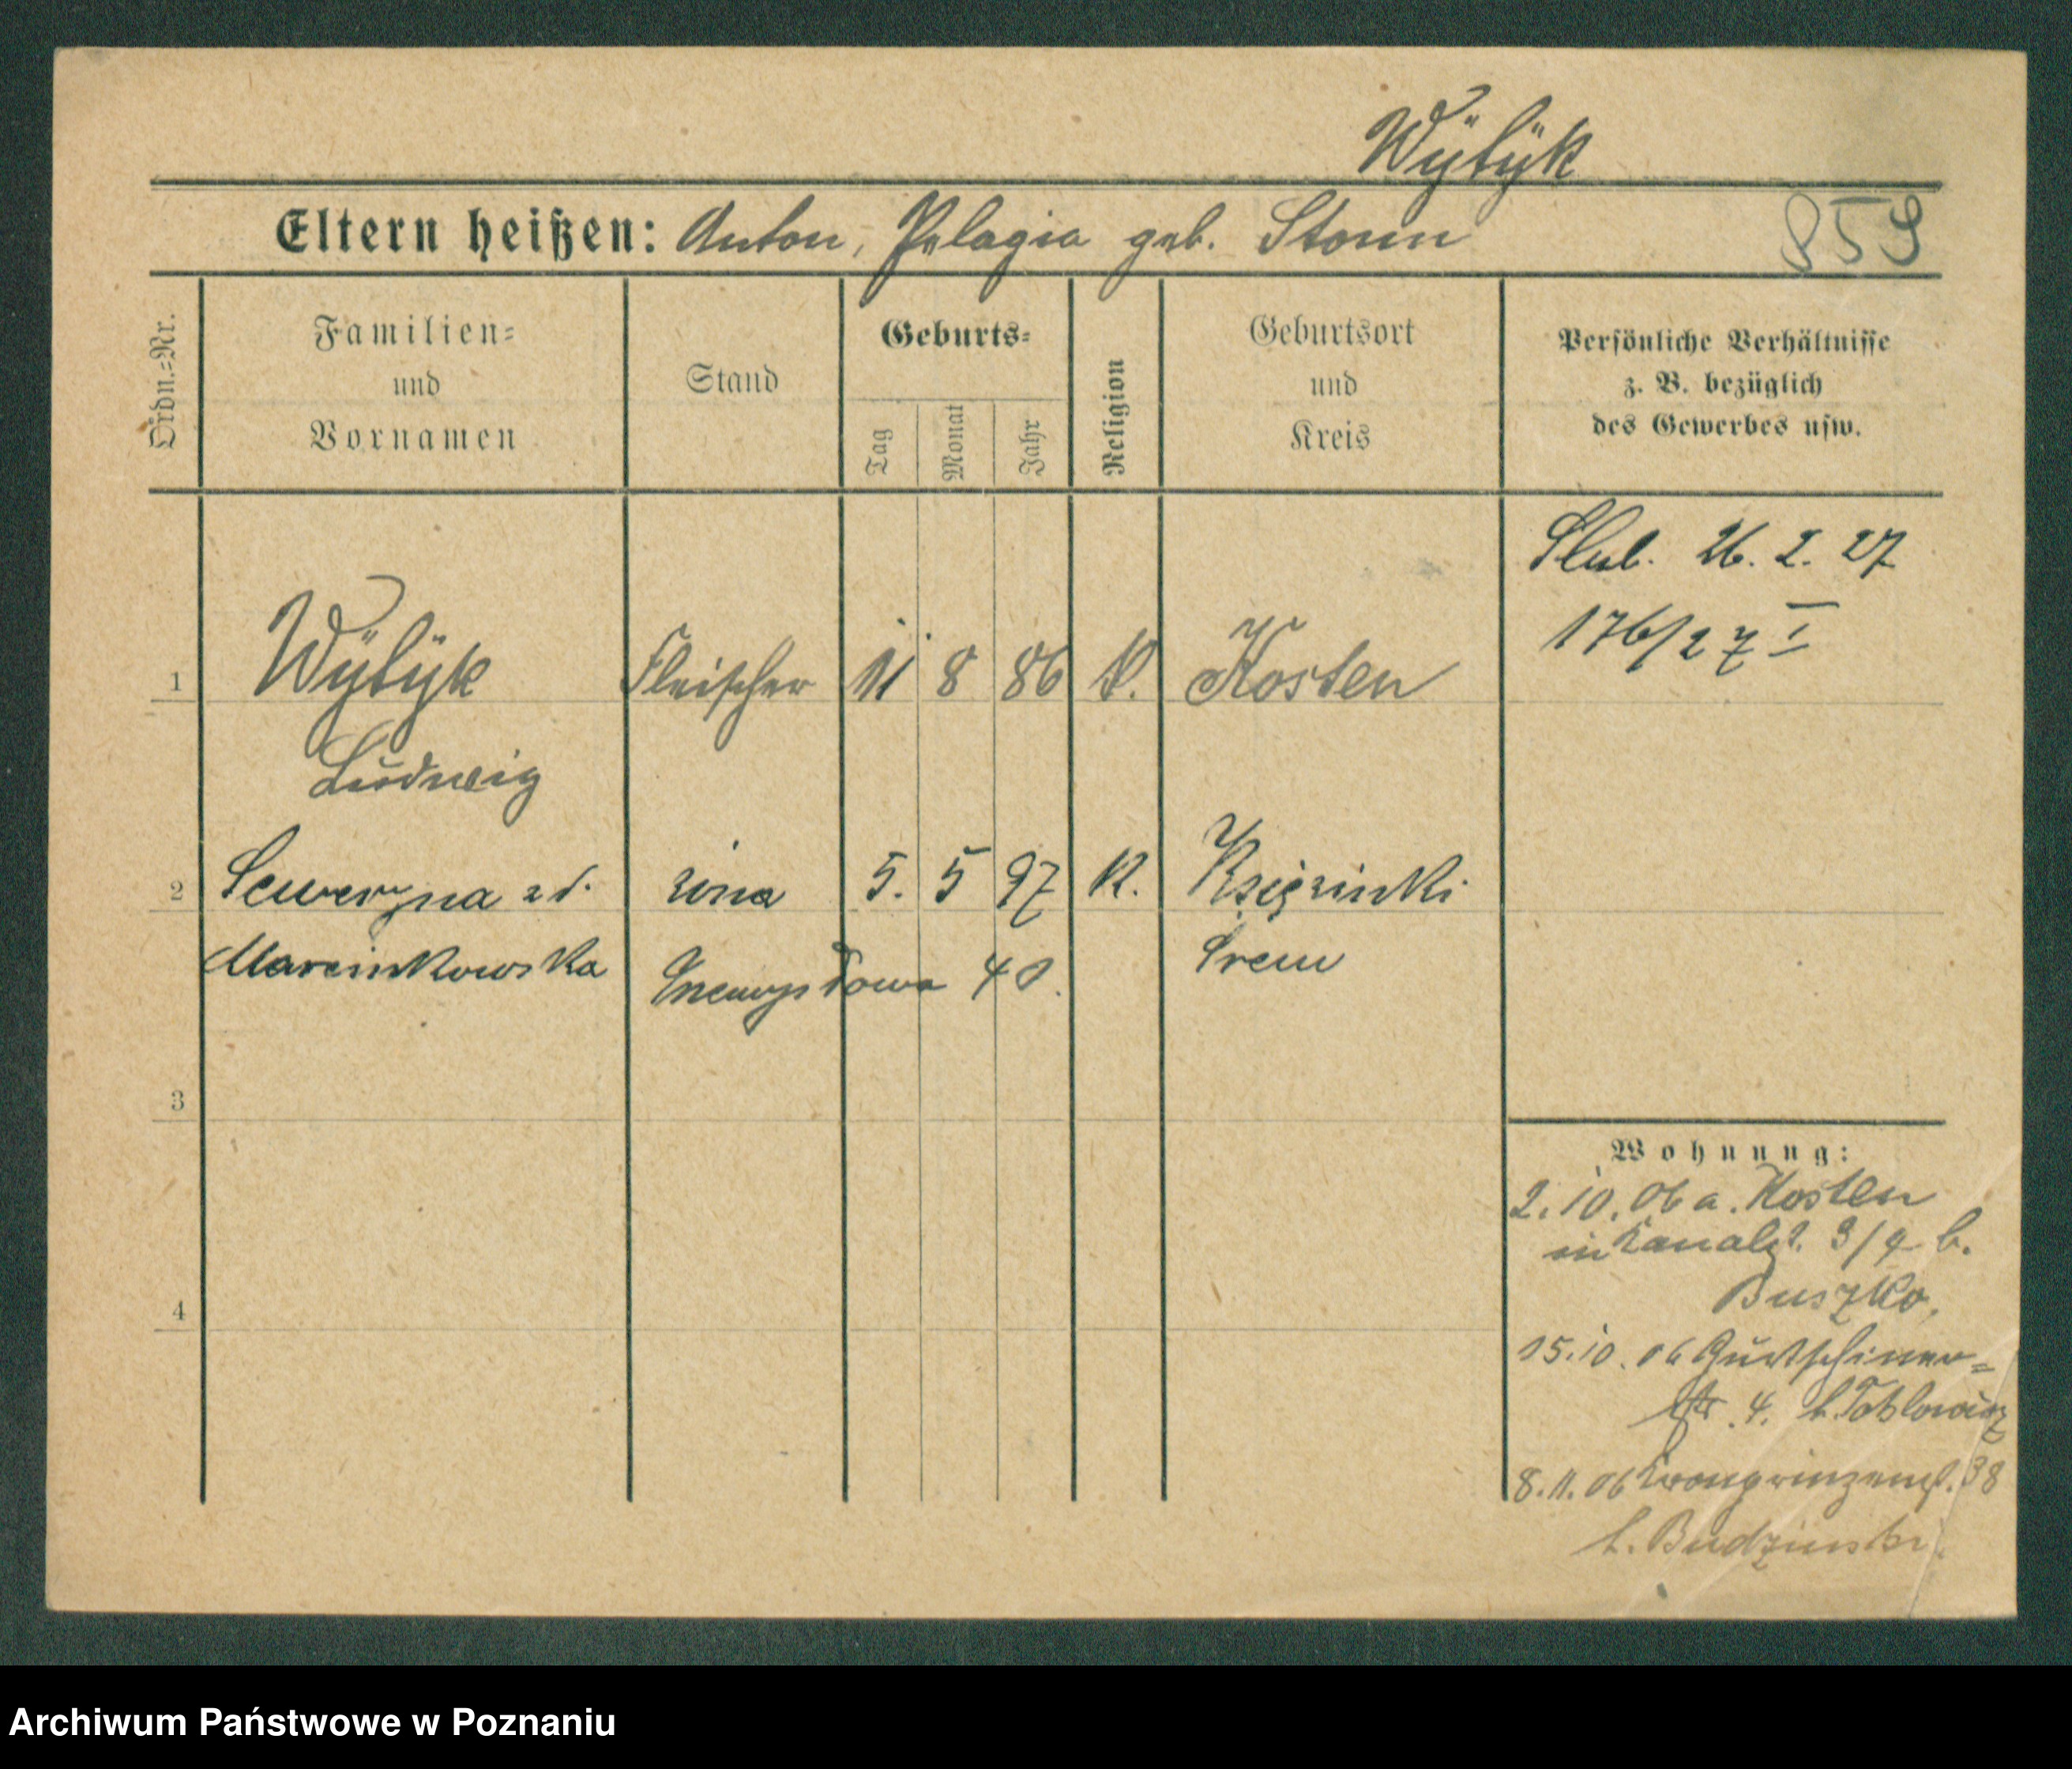 Wÿtÿk
Eltern heißen: Anton, Pelagia geb. Stonn
859
Ordn.=Nr.
Familien=
und
Vornamen
Stand
Geburts=
Tag
Monat
Jahr
Religion
Geburtsort
und
Kreis
Persönliche Verhältnisse
z. B. bezüglich
des Gewerbes usw.
Slub. 26. 2. 27
176/27 I
1 Wÿtÿk Fleischer 11 8 86 K. Kosten
Ludwig
2 Seweryna z d. żona 5. 5 97 K.
Marcinkowska 40. Śrem
3
4
Wohnung:
2. 10. 06 a. Kosten
in Kanalst. 3/4 b.
Buszko,
15. 10. 06 Gurtschiner=
str. 4. b.
8. 11. 06 Kronprinzenst. 38
b. Budzinski.
Archiwum Państwowe w Poznaniu